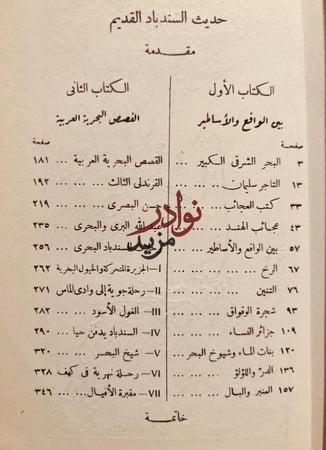 حديث السندباد القديم
مقدمة
الكتاب الأول
بين الواقع والأساطير
صفحة
البحر الشرقى الكبير ... ٣
التاجر سليمان ... ... ... ١٣
كتب العجائب ... ... ٣٣
عجائب الهند ... ... ٤٣
بين الواقع والأساطير ... ٥٧
الرخ ... ... ... ... ٦٧
التنين ... ... ... ٧٦
شجرة الوقواق ... ... ٩٣
جزائر النساء ... ... ١٠٩
بنات الماء وشيوخ البحر ... ١٢٠
الدر واللؤلؤ ... ... ١٣٦
العنبر والبال ... ... ... ١٥٧
الكتاب الثانى
القصص البحرية العربية
صفحة
القصص البحرية العربية ... ١٨١
القرندلى الثالث ... ... ١٩٢
حسن البصرى ... ... ٢١٩
عبد الله البرى والبحرى ... ٢٣٥
السندباد البحرى ... ٢٥٦
I– الجزيرة المتحركة والخيول البحرية ٢٦٢
II– رحلة جوية إلى وادى الماس ٢٧١
III– الغول الأسود ... ... ٢٨٢
IV– السندباد يدفن حيا ... ٢٩٠
V– شيخ البحر ... ... ٣٢٠
VI– رحلة نهرية فى كهف ٣٢٨
VII– مقبرة الأفيال ... ... ٣٤٦
خاتمة
نوادر
مزيد